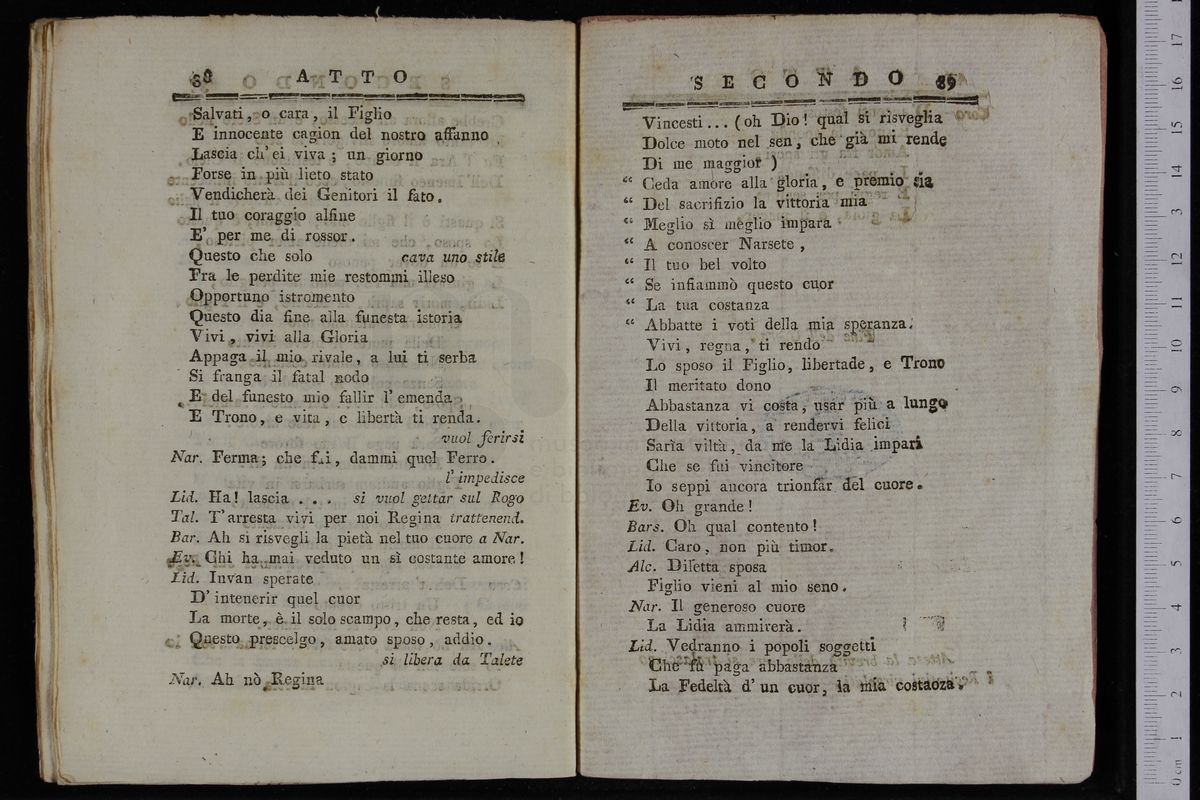 38 ATTO
Salvati, o cara, il Figlio
E innocente cagion del nostro affanno
Lascia ch' ei viva; un giorno
Forse in più lieto stato
Vendicherà dei Genitori il fato.
Il tuo coraggio alfine
E' per me di rossor.
Questo che solo cava uno stile
Fra le perdite mie restommi illeso
Opportuno istromento
Questo dia fine alla funesta istoria
Vivi, vivi alla Gloria
Appaga il mio rivale, a lui ti serba
Si franga il fatal nodo
E del funesto mio fallir l' emenda
E Trono, e vita, e libertà ti renda.
vuol ferirsi
Nar. Ferma; che fai, dammi quel Ferro.
l' impedisce
Lid. Ha! lascia . . . si vuol gettar sul Rogo
Tal. T' arresta vivi per noi Regina trattenend.
Bar. Ah si risvegli la pietà nel tuo cuore a Nar.
Ev. Chi ha mai veduto un sì costante amore!
Lid. Invan sperate
D' intenerir quel cuor
La morte, è il solo scampo, che resta, ed io
Questo prescelgo, amato sposo, addio.
si libera da Talete
Nar. Ah nò Regina
SECONDO 39
Vincesti... (oh Dio! qual si risveglia
Dolce moto nel sen, che già mi rende
Di me maggior )
“ Ceda amore alla gloria, e premio sia
“ Del sacrifizio la vittoria mia
“ Meglio sì meglio impara
“ A conoscer Narsete,
“ Il tuo bel volto
“ Se infiammò questo cuor
“ La tua costanza
“ Abbatte i voti della mia speranza.
Vivi, regna, ti rendo
Lo sposo il Figlio, libertade, e Trono
Il meritato dono
Abbastanza vi costa, usar più a lungo
Della vittoria, a rendervi felici
Sarìa viltà, da me la Lidia impari
Che se fui vincitore
Io seppi ancora trionfar del cuore.
Ev. Oh grande!
Bars. Oh qual contento!
Lid. Caro, non più timor.
Alc. Diletta sposa
Figlio vieni al mio seno.
Nar. Il generoso cuore
La Lidia ammirerà.
Lid. Vedranno i popoli soggetti
Che fù paga abbastanza
La Fedeltà d' un cuor, la mia costaoza.